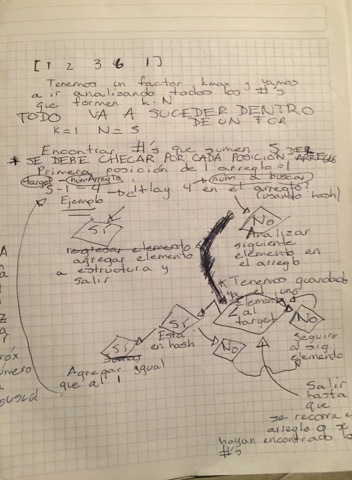 [1 2 3 6 1]
Tenemos un factor kmax y vamos
a ir analizando todos los #'s
que formen k:N
TODO VA A SUCEDER DENTRO
DE UN FOR
K=1 N=5
Encontrar #'s que sumen 5
* SE DEBE CHECAR POR CADA POSICIÓN DEL ARREGLO
Primera posición de 1 arreglo=1
target - númArreglo = núm. a buscar
5-1=4 → ¿Hay 4 en el arreglo?
(usando hash)
Ejemplo
Si
No
regresar elemento
agregar elemento
a estructura y
salir
Analizar
siguiente
elemento en
el arreglo
* Tenemos guardado
ya el uno
Elemento
2 al
target
Si
Está
en hash
No
No
Seguir
a sig
elemento
Si
Agregar igual
que al 1
Salir
hasta
que
se recorra el
arreglo o se
hayan encontrado los
#'s